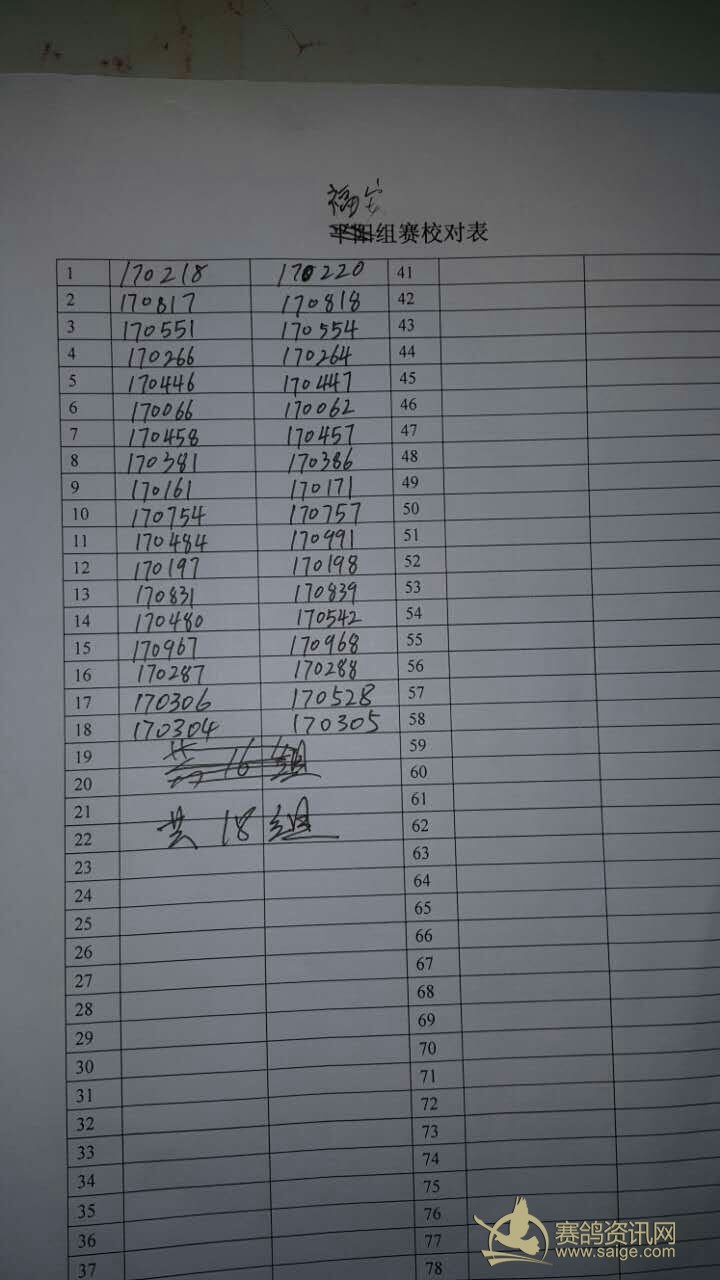 福安
平阳组赛校对表
1 170218 170220 41
2 170817 170818 42
3 170551 170554 43
4 170266 170264 44
5 170446 170447 45
6 170066 170062 46
7 170458 170457 47
8 170381 170386 48
9 170161 170171 49
10 170754 170757 50
11 170484 170991 51
12 170197 170198 52
13 170831 170839 53
14 170480 170542 54
15 170967 170968 55
16 170287 170288 56
17 170306 170528 57
18 170304 170305 58
19 共16组 59
20 60
21 61
22 共18组 62
23 63
24 64
25 65
26 66
27 67
28 68
29 69
30 70
31 71
32 72
33 73
34 74
35 75
36 76
37 77
78
赛鸽资讯网
www.saige.com